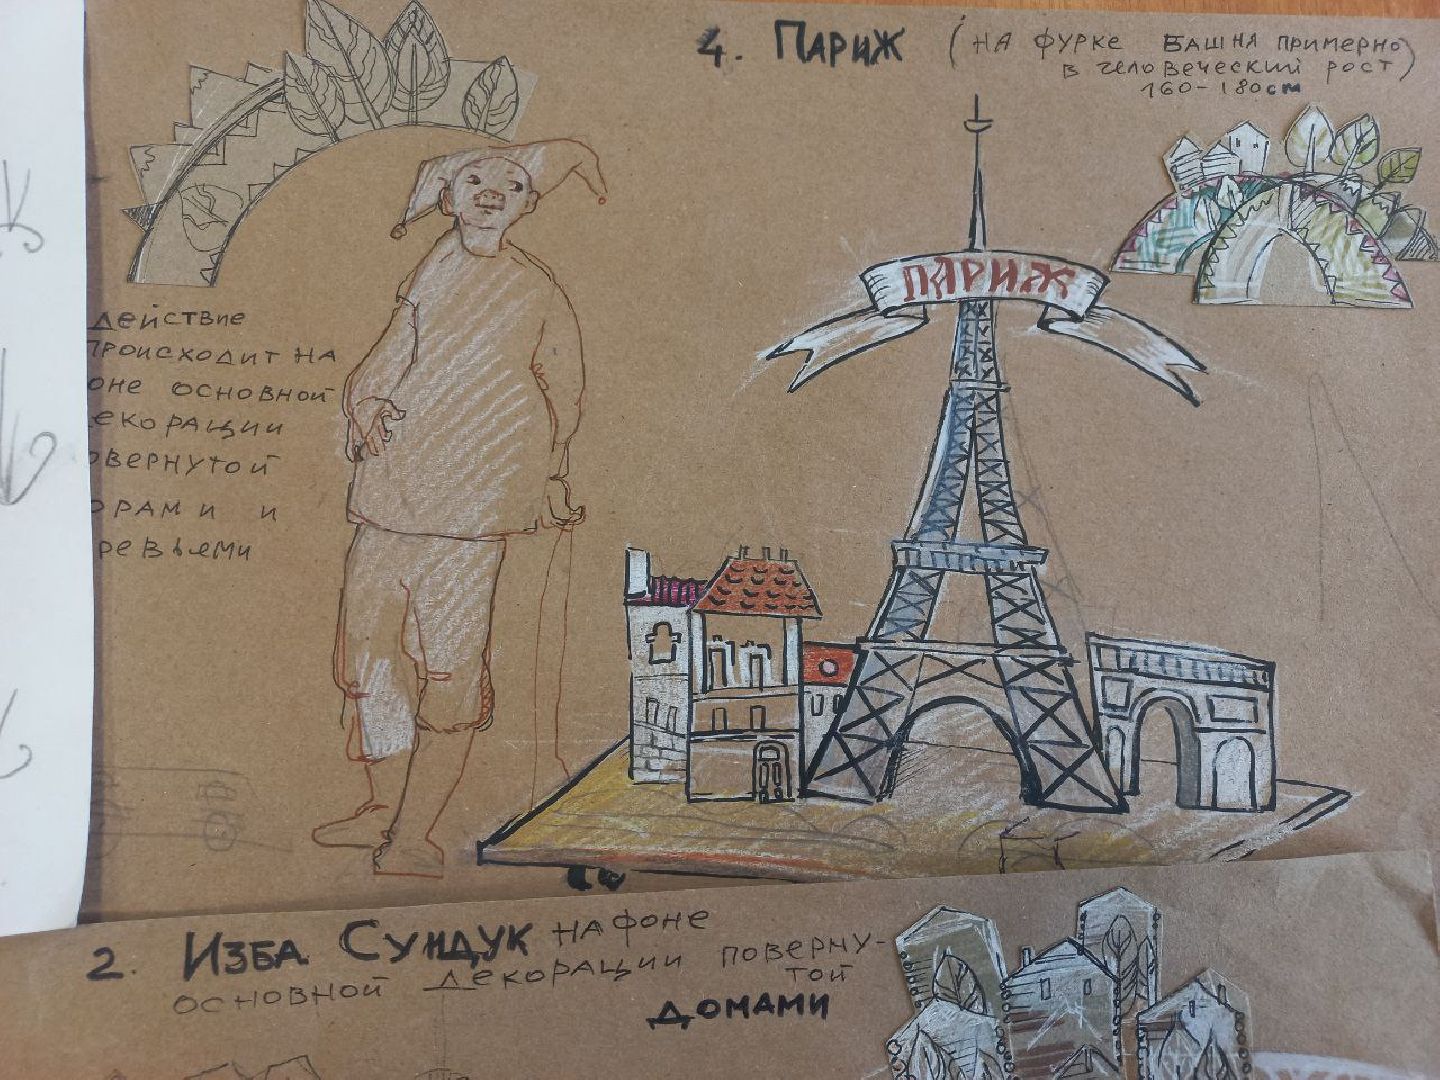 4. Париж (на фурке башня примерно
в человеческий рост)
160-180см
ПАРИЖ
действие
происходит на
оне основной
екорации
овернутой
орами и
ревьеми
2. Изба Сундук на фоне
основной декорации поверну-
той
домами